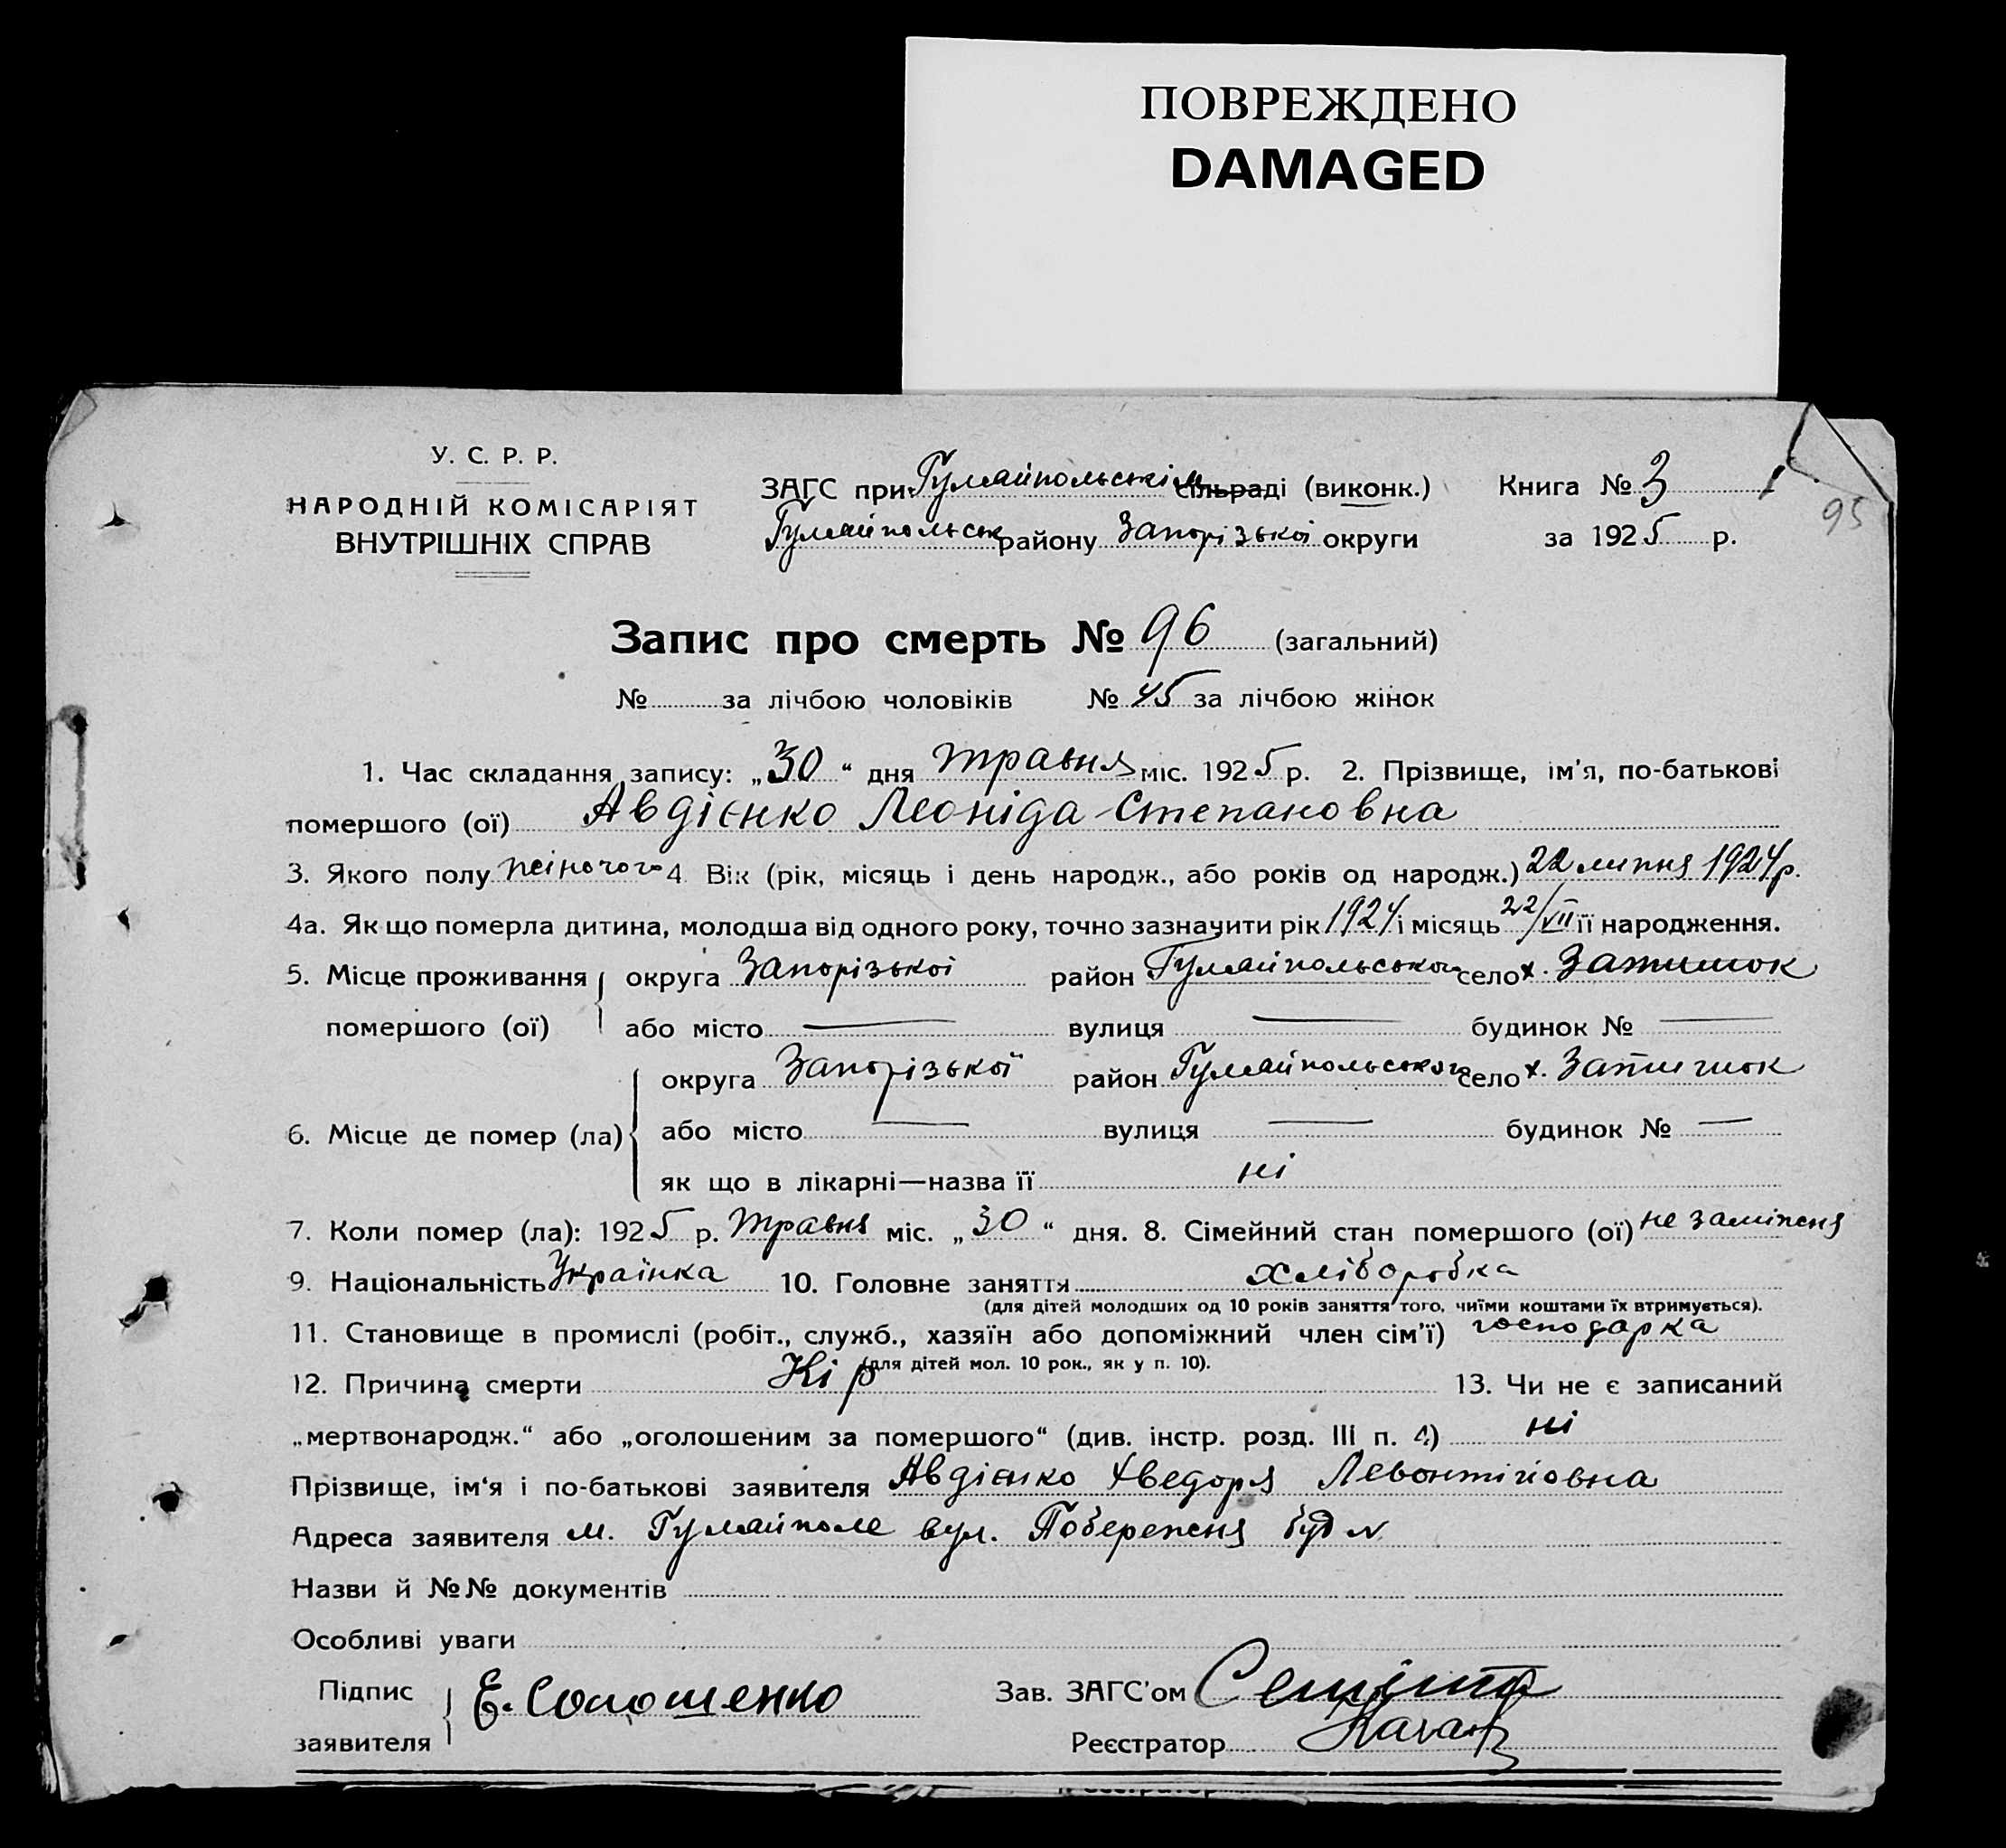 ПОВРЕЖДЕНО
DAMAGED
У. С. Р. Р.
НАРОДНІЙ КОМІСАРІЯТ
ВНУТРІШНІХ СПРАВ
ЗАГС при Гуляйпольськім сільраді (виконк.) Книга № 3
Гуляйпольськ району Запорізької округи за 1925 р.
95
Запис про смерть № 96 (загальний)
№ за лічбою чоловіків № 45 за лічбою жінок
1. Час складання запису: „30“ дня травня міс. 1925 р. 2. Прізвище, ім'я, по-батькові
помершого (ої) Авдієнко Леоніда Степановна
3. Якого полу жіночого 4. Вік (рік, місяць і день народж., або років од народж.) 22 липня 1924 р.
4а. Як що померла дитина, молодша від одного року, точно зазначити рік 1924 і місяць 22/VII її народження.
5. Місце проживання помершого (ої) округа Запорізької район Гуляйпольського село х. Затишок
або місто — вулиця — будинок № —
6. Місце де помер (ла) округа Запорізької район Гуляйпольського село х. Затишок
або місто — вулиця — будинок № —
як що в лікарні—назва її ні
7. Коли помер (ла): 1925 р. травня міс. „30“ дня. 8. Сімейний стан помершого (ої) не заміжня
9. Національність Українка 10. Головне заняття хліборобка
(для дітей молодших од 10 років заняття того, чиїми коштами їх втримується).
11. Становище в промислі (робіт., служб., хазяїн або допоміжний член сім'ї) господарка
(для дітей мол. 10 рок., як у п. 10).
12. Причина смерти Кір 13. Чи не є записаний
„мертвонародж.“ або „оголошеним за помершого“ (див. інстр. розд. III п. 4) ні
Прізвище, ім'я і по-батькові заявителя Авдієнко Хведоря Левонтійовна
Адреса заявителя м. Гуляйполе вул. Побережня буд №
Назви й №№ документів
Особливі уваги
Підпис заявителя Е. Солошенко Зав. ЗАГС'ом
Реєстратор